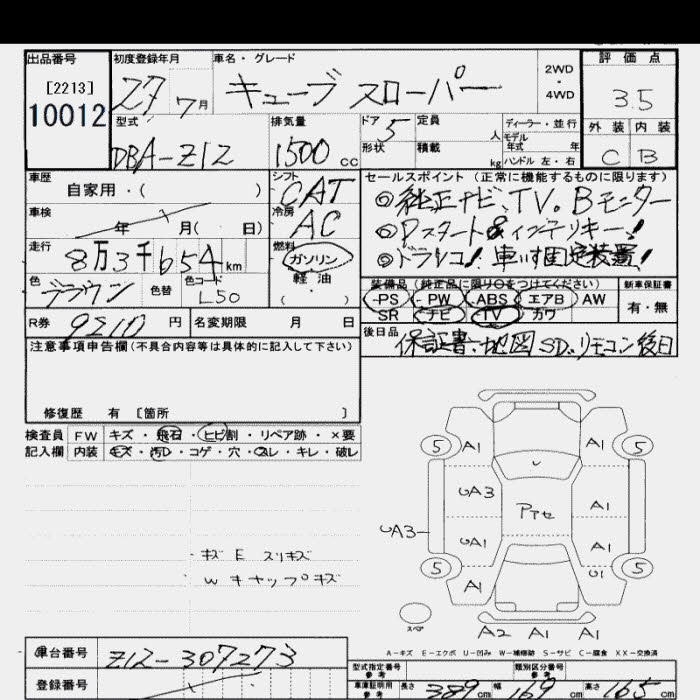 出品番号
[2213]
10012
初度登録年月
27 7月
車名・グレード
キューブ スローパー
2WD
・
4WD
評価点
3.5
外装 内装
C B
型式
DBA-Z12
排気量
1500 cc
ドア
5
形状
定員
人
積載
kg
ディーラー・並行
モデル
年式 年
ハンドル 左・右
車歴
自家用・( )
車検
年 月( 日)
走行
8万3千654km
色
ブラウン
色替
色コード
L50
シフト
CAT
冷房
AC
燃料
ガソリン
軽油
( )
セールスポイント(正常に機能するものに限ります)
◎純正ナビ、TV。Bモニター
◎Pスタート&インテリキー!
◎ドラレコ!車いす固定装置!
装備品(純正品に限り○をつけてください)
PS・PW・ABS・エアB・AW
SR・ナビ・TV・カワ
新車保証書
有・無
R券 9510 円
名変期限 月 日
後日品
保証書、地図SD、リモコン後日
注意事項申告欄(不具合内容等は具体的に記入して下さい)
修復歴 有 [箇所 ]
検査員 FW キズ・飛石・ヒビ割・リペア跡・×要
記入欄 内装 キズ・汚レ・コゲ・穴・スレ・キレ・破レ
キズ E スリキズ
W キャップキズ
5 A1 A1 5
UA3 A1
アアセ
UA3
UA1 A1
5 A1 U1 5
スペア
A2 A1 A1
A-キズ E-エクボ U-凹み W-補修跡 S-サビ C-腐食 XX-交換済
車台番号 Z12-307273
登録番号
型式指定番号
参考
類別区分番号
参考
車庫証明用
参考
長さ 389cm 幅 169cm 高さ 165cm